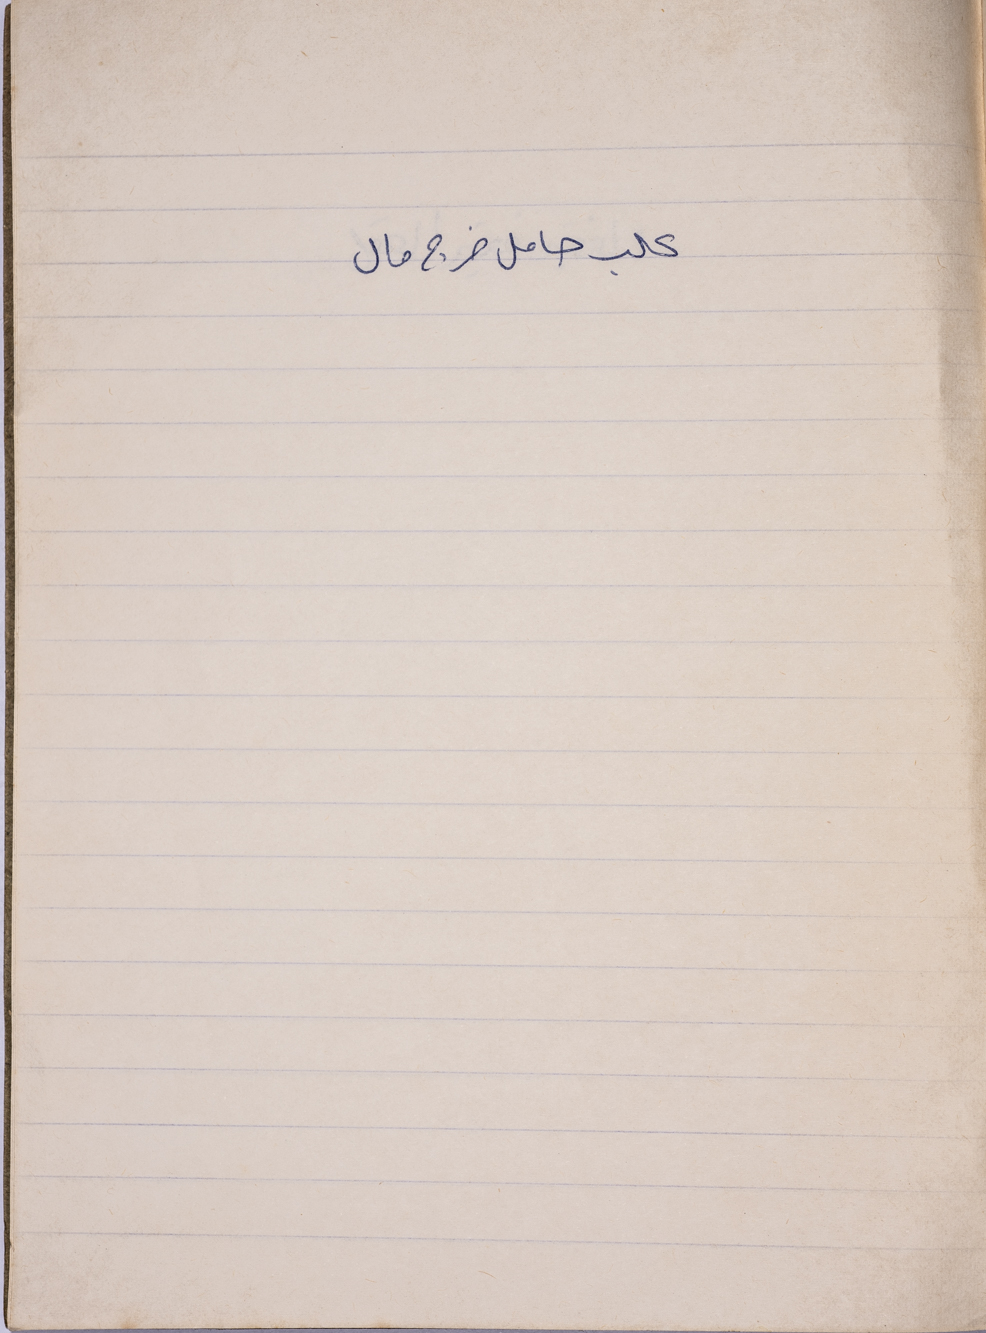 كلب حامل خرج مال